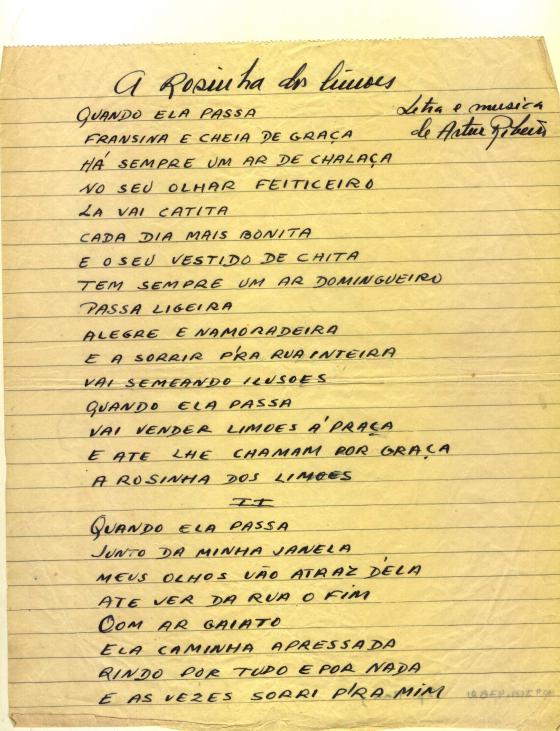 A Rosinha dos limoes
Letra e musica
de Artur Ribeiro
QUANDO ELA PASSA
FRANSINA E CHEIA DE GRAÇA
HÁ SEMPRE UM AR DE CHALAÇA
NO SEU OLHAR FEITICEIRO
LA VAI CATITA
CADA DIA MAIS BONITA
E O SEU VESTIDO DE CHITA
TEM SEMPRE UM AR DOMINGUEIRO
PASSA LIGEIRA
ALEGRE E NAMORADEIRA
E A SORRIR P'RA RUA INTEIRA
VAI SEMEANDO ILUSOES
QUANDO ELA PASSA
VAI VENDER LIMOES Á PRAÇA
E ATE LHE CHAMAM POR GRAÇA
A ROSINHA DOS LIMOES
II
QUANDO ELA PASSA
JUNTO DA MINHA JANELA
MEUS OLHOS VÃO ATRAZ D'ELA
ATE VER DA RUA O FIM
COM AR GAIATO
ELA CAMINHA APRESSADA
RINDO POR TUDO E POR NADA
E AS VEZES SORRI P'RA MIM